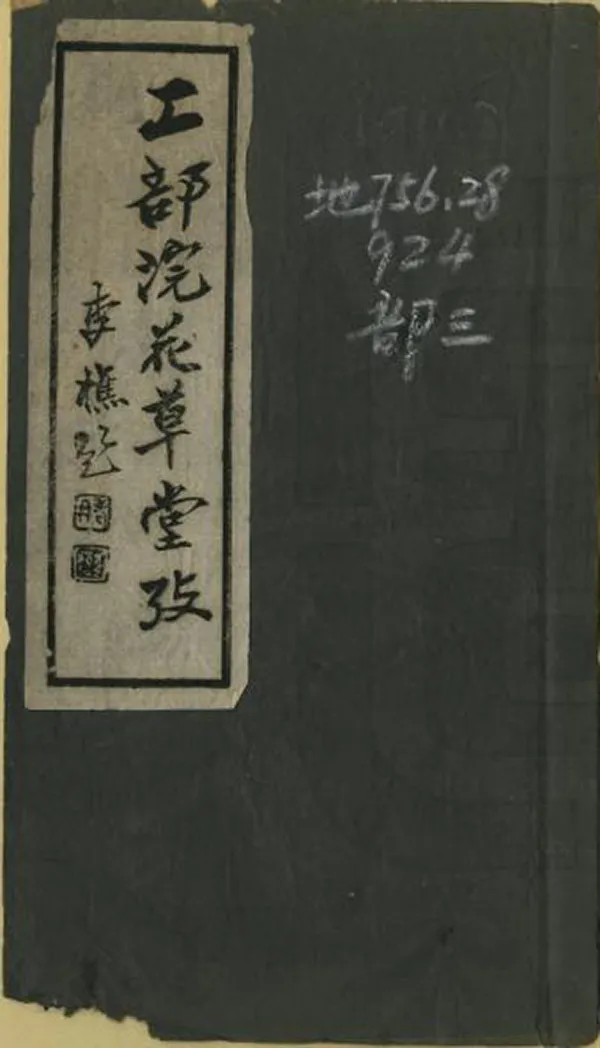 工部浣花草堂攷
李樵题
地756.28
924
部三